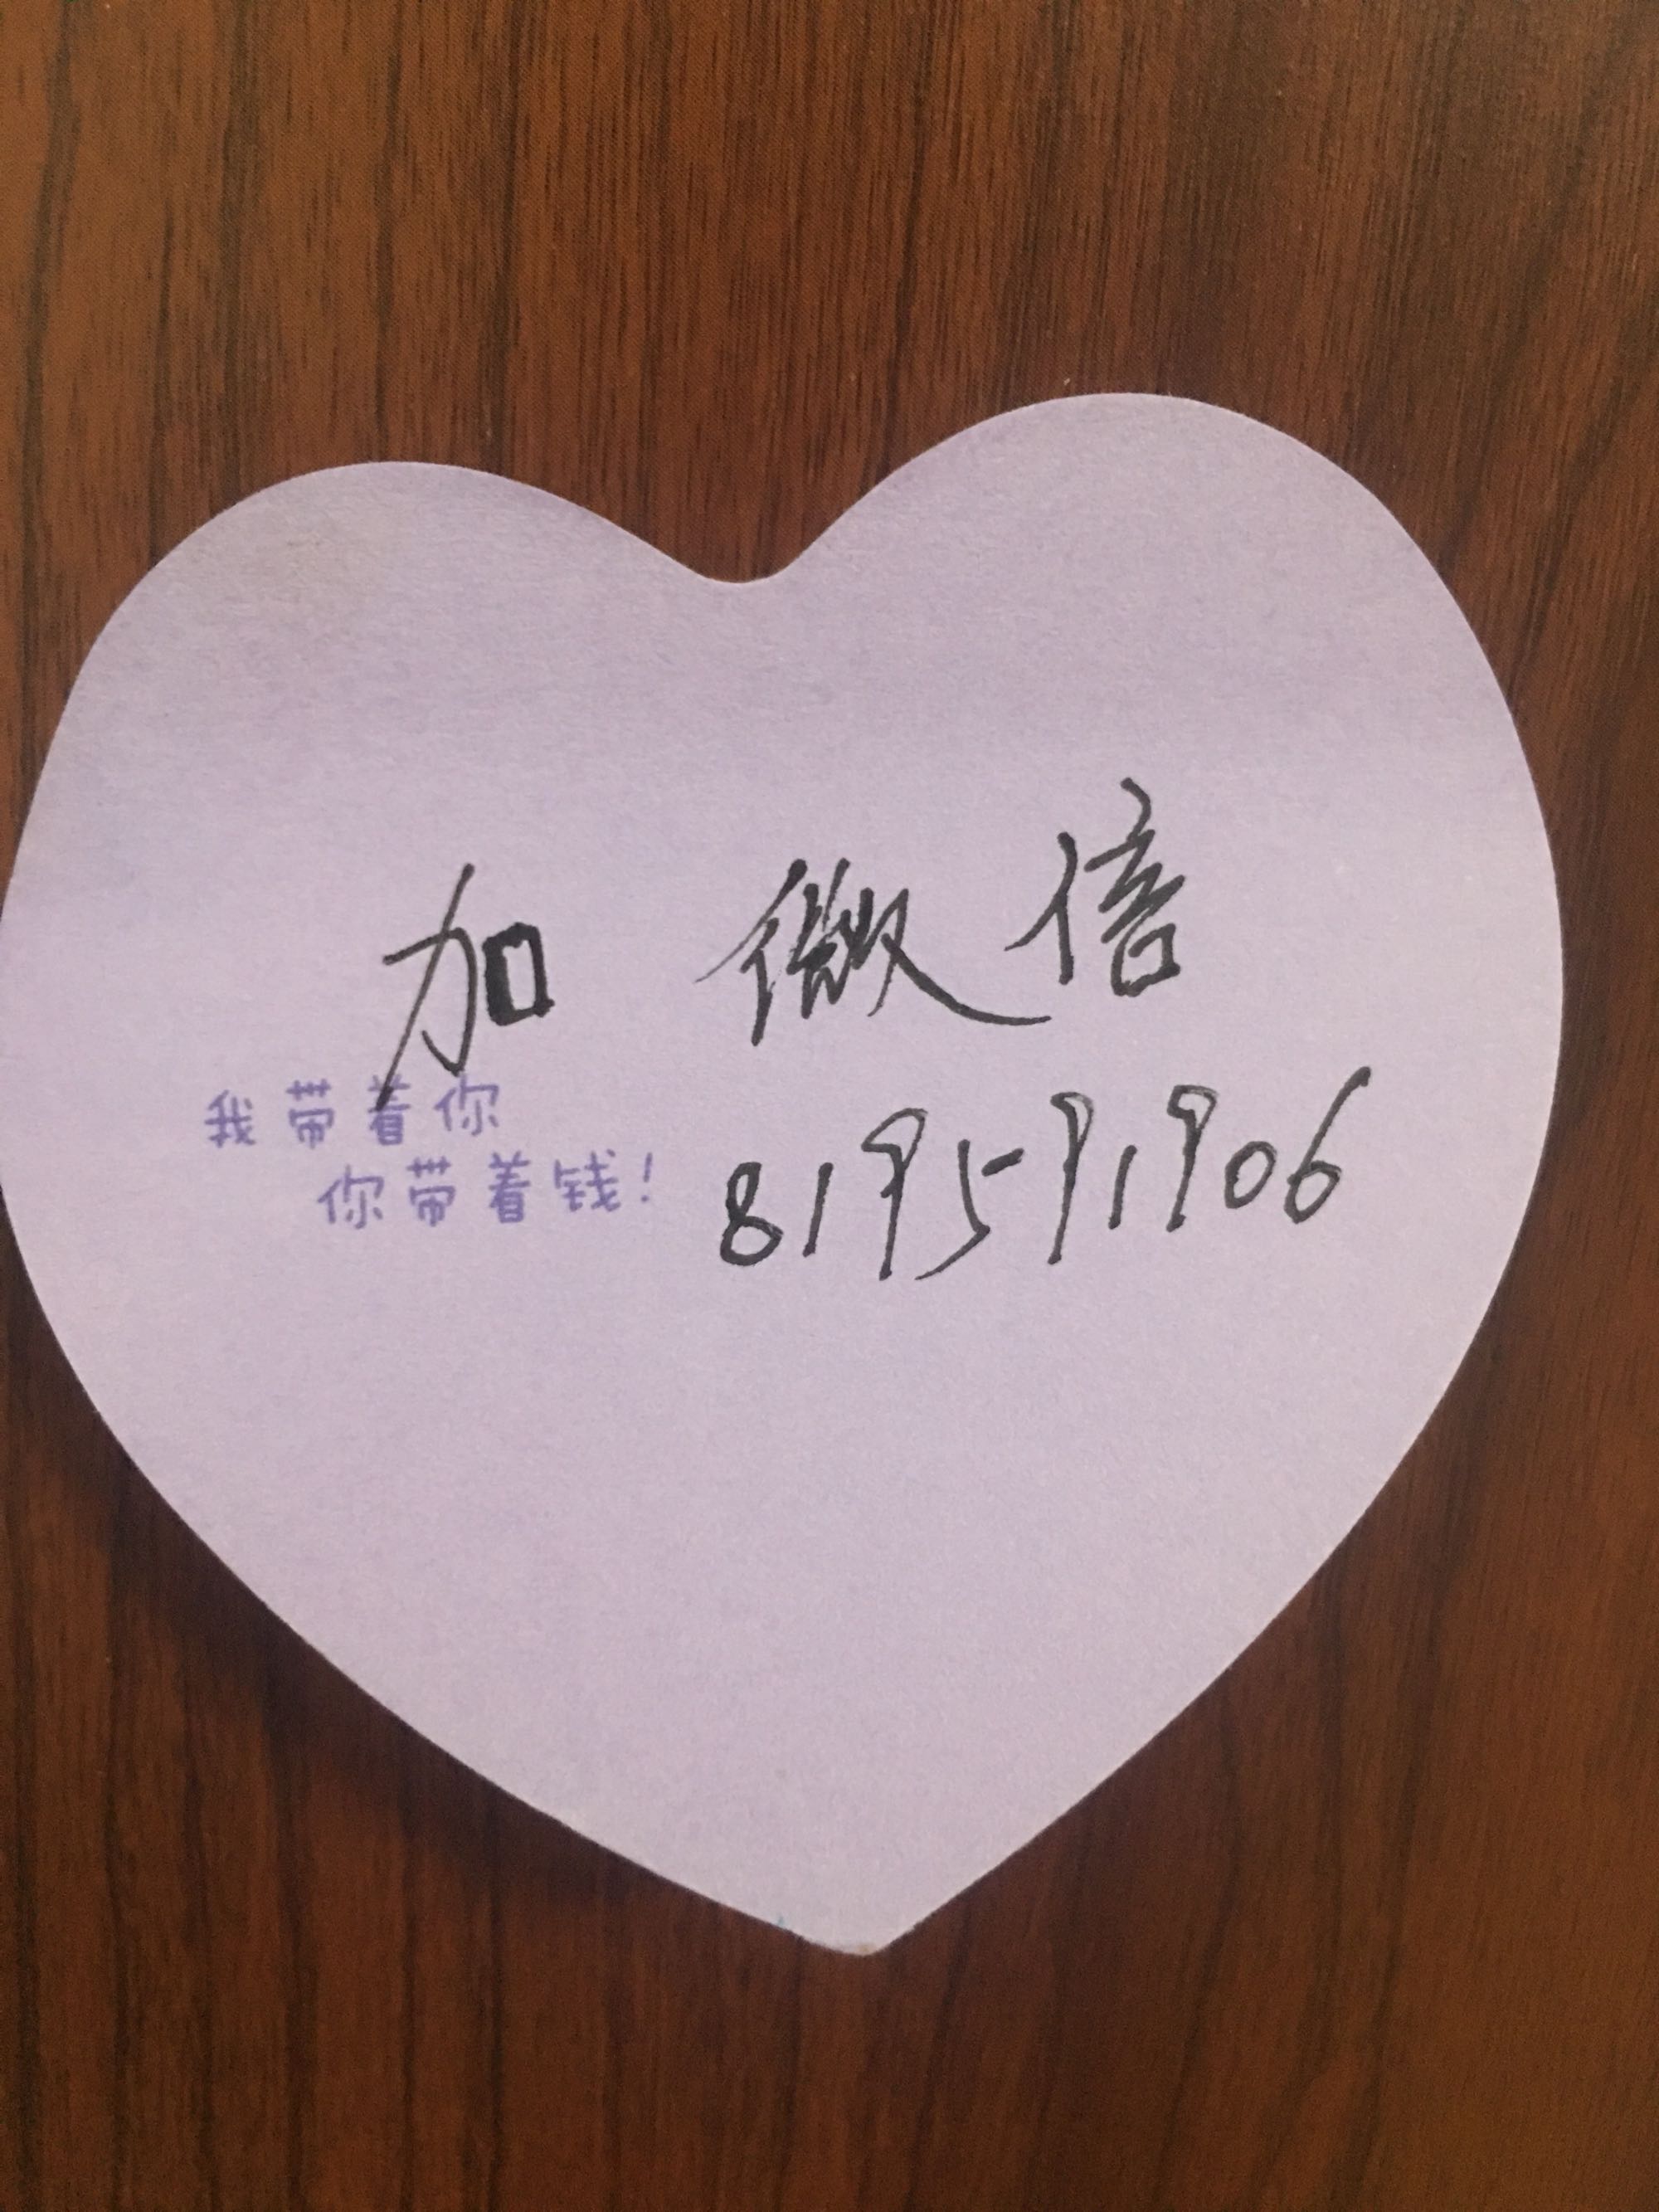 加 微信
我带着你
你带着钱!
819591906